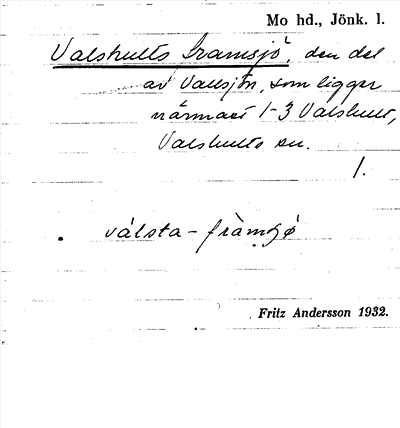 Mo hd., Jönk. l.
Valshults Framsjö, den del
av Vallsjön, som ligger
närmast 1-3 Valshult,
Valshults sn.
1.
. válsta-fràmsjø
Fritz Andersson 1932.